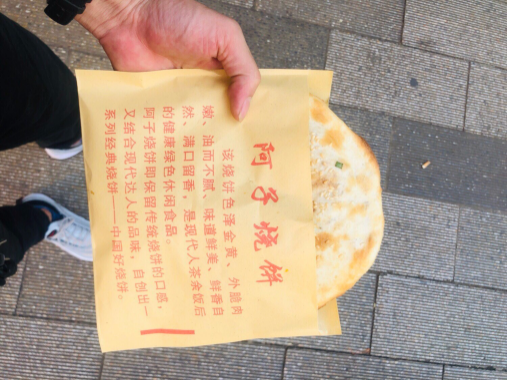 阿子烧饼
该烧饼色泽金黄、外脆肉
嫩、油而不腻、味道鲜美、鲜香自
然、满口留香，是现代人茶余饭后
的健康绿色休闲食品。
阿子烧饼即保留传统烧饼的口感，
又结合现代达人的品味，自创出一
系列经典烧饼——中国好烧饼。